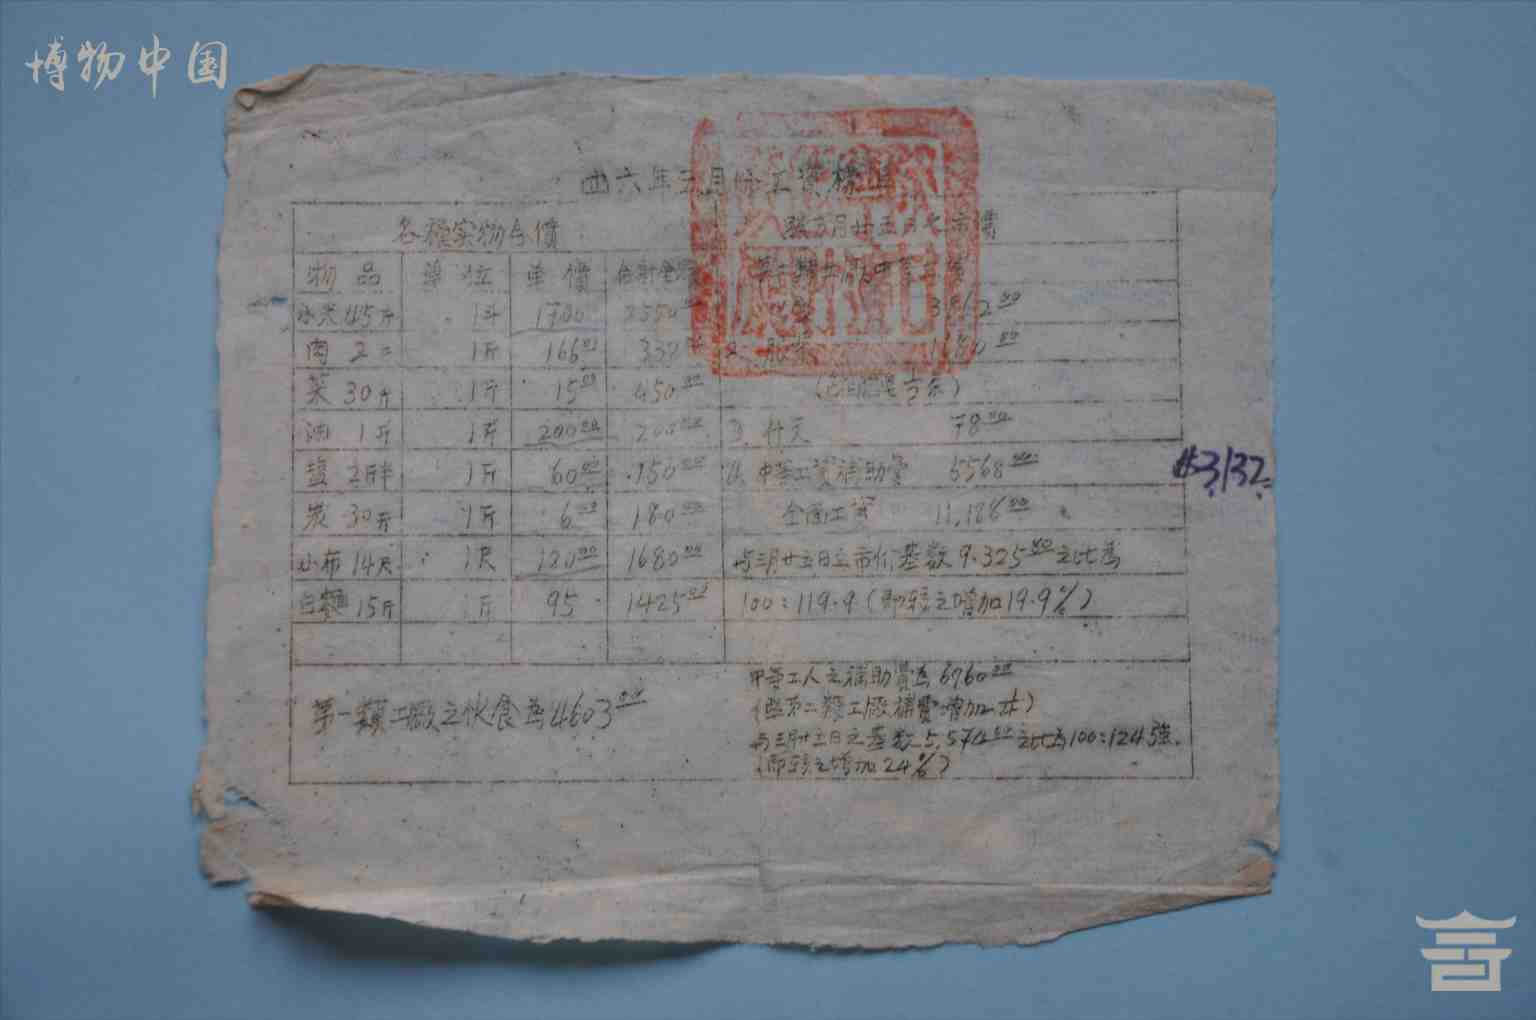 博物中国
四六年三月份工資標準
各種实物与價
照三月廿五日之市價
物品 單位 单價
小米45斤 1斗 1700 2550
肉 2〃 1斤 166 332
菜 30斤 1斤 15.00 450.00
油 1斤 1斤 200.00 200.00 3. 什支 78.00
盐 2斤半 1斤 60.00 150.00 4. 中等工資補助費 5568.00
炭 30斤 1斤 6.00 180.00 全面工資 11,186.00
小布 14尺 1尺 120.00 1680.00 与三月廿五日之市价基数9.325.00之比为
白麵 15斤 1斤 95 1425.00 100:119.9(即較之增加19.9%)
第一類工廠之伙食為4603.00
中等工人之補助費為6760.00
与三月廿五日之基数5,574.00之比为100:124强.
(即較之增加24%)
#3132